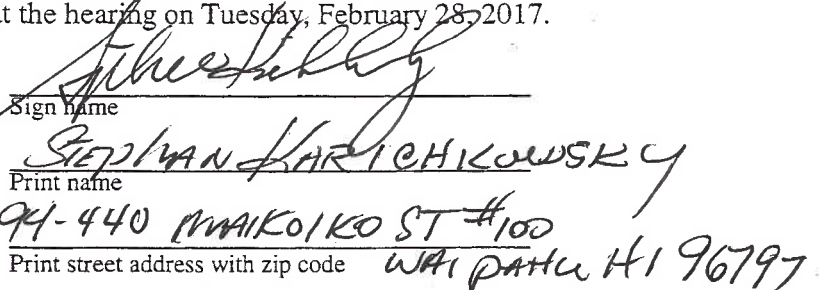 at the hearing on Tuesday, February 28, 2017.
Sign name
STEPHAN KARICHKOWSKY
Print name
94-440 MAIKOIKO ST #100
Print street address with zip code WAIPAHU HI 96797